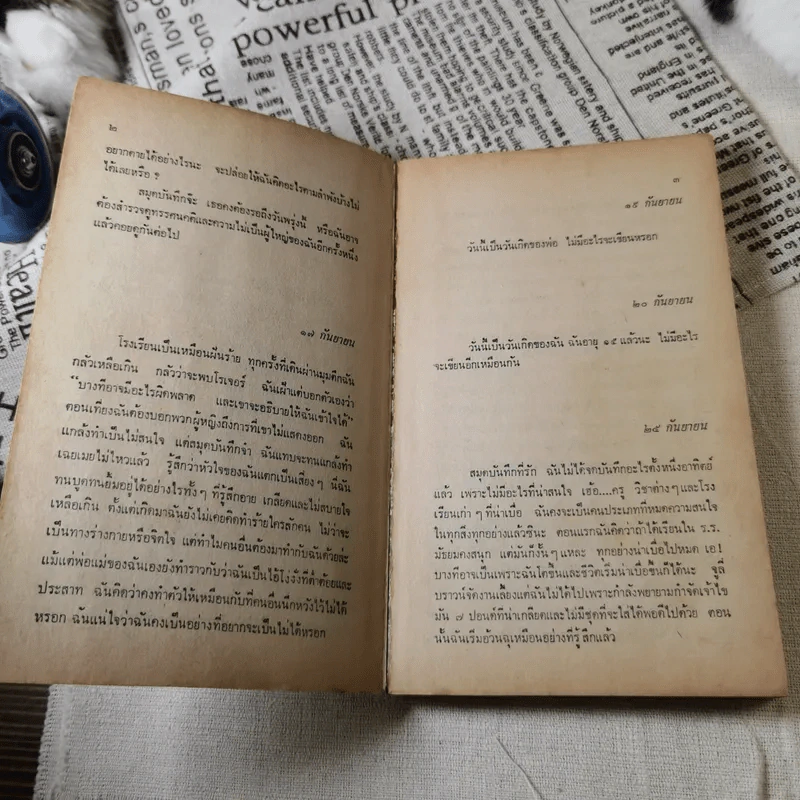 ๒
อยากตายได้อย่างไรนะ จะปล่อยให้ฉันคิดอะไรตามลำพังบ้างไม่
ได้เลยหรือ ?
สมุดบันทึกจ๊ะ เธอคงต้องรอถึงวันพรุ่งนี้ หรือฉันอาจ
ต้องสำรวจดูทรรศนคติและความไม่เป็นผู้ใหญ่ของฉันอีกครั้งหนึ่ง
แล้วคอยดูกันต่อไป
๑๗ กันยายน
โรงเรียนเป็นเหมือนฝันร้าย ทุกครั้งที่เดินผ่านมุมตึกฉัน
กลัวเหลือเกิน กลัวว่าจะพบโรเจอร์ ฉันเฝ้าแต่บอกตัวเองว่า
"บางทีอาจมีอะไรผิดพลาด และเขาจะอธิบายให้ฉันเข้าใจได้"
ตอนเที่ยงฉันต้องบอกพวกผู้หญิงถึงการที่เขาไม่แสดงออก ฉัน
แกล้งทำเป็นไม่สนใจ แต่สมุดบันทึกจ๋า ฉันแทบจะทนแกล้งทำ
เฉยเมยไม่ไหวแล้ว รู้สึกว่าหัวใจของฉันแตกเป็นเสี่ยงๆ นี่ฉัน
ทนพูดทนยิ้มอยู่ได้อย่างไรทั้งๆ ที่รู้สึกอาย เกลียดและไม่สบายใจ
เหลือเกิน ตั้งแต่เกิดมาฉันยังไม่เคยคิดทำร้ายใครสักคน ไม่ว่าจะ
เป็นทางร่างกายหรือจิตใจ แต่ทำไมคนอื่นต้องมาทำกับฉันด้วยล่ะ
แม้แต่พ่อแม่ของฉันเองยังทำราวกับว่าฉันเป็นไอ้โง่งั่งที่ต่ำต้อยและ
ประสาท ฉันคิดว่าคงทำตัวให้เหมือนกับที่คนอื่นนึกหวังไว้ไม่ได้
หรอก ฉันแน่ใจว่าฉันคงเป็นอย่างที่อยากจะเป็นไม่ได้หรอก
๓
๑๙ กันยายน
วันนี้เป็นวันเกิดของพ่อ ไม่มีอะไรจะเขียนหรอก
๒๐ กันยายน
วันนี้เป็นวันเกิดของฉัน ฉันอายุ ๑๕ แล้วนะ ไม่มีอะไร
จะเขียนอีกเหมือนกัน
๒๕ กันยายน
สมุดบันทึกที่รัก ฉันไม่ได้จดบันทึกอะไรตั้งหนึ่งอาทิตย์
แล้ว เพราะไม่มีอะไรที่น่าสนใจ เฮ้อ....ครู วิชาต่างๆ และโรง
เรียนเก่าๆ ที่น่าเบื่อ ฉันคงจะเป็นคนประเภทที่หมดความสนใจ
ในทุกสิ่งทุกอย่างแล้วซีนะ ตอนแรกฉันคิดว่าถ้าได้เรียนใน ร.ร.
มัธยมคงสนุก แต่มันก็งั้นๆ แหละ ทุกอย่างน่าเบื่อไปหมด เอ!
บางทีอาจเป็นเพราะฉันโตขึ้นและชีวิตเริ่มน่าเบื่อขึ้นก็ได้นะ จูลี่
บราวน์จัดงานเลี้ยงแต่ฉันไม่ได้ไปเพราะกำลังพยายามกำจัดเจ้าไข
มัน ๗ ปอนด์ที่น่าเกลียดและไม่มีชุดที่จะใส่ได้พอดีไปด้วย ตอน
นั้นฉันเริ่มอ้วนฉุเหมือนอย่างที่รู้สึกแล้ว
powerful